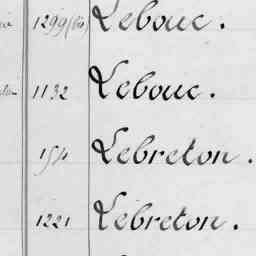 1299 (bis) Lebouc.
1132 Lebouc.
154 Lebreton.
1221 Lebreton.